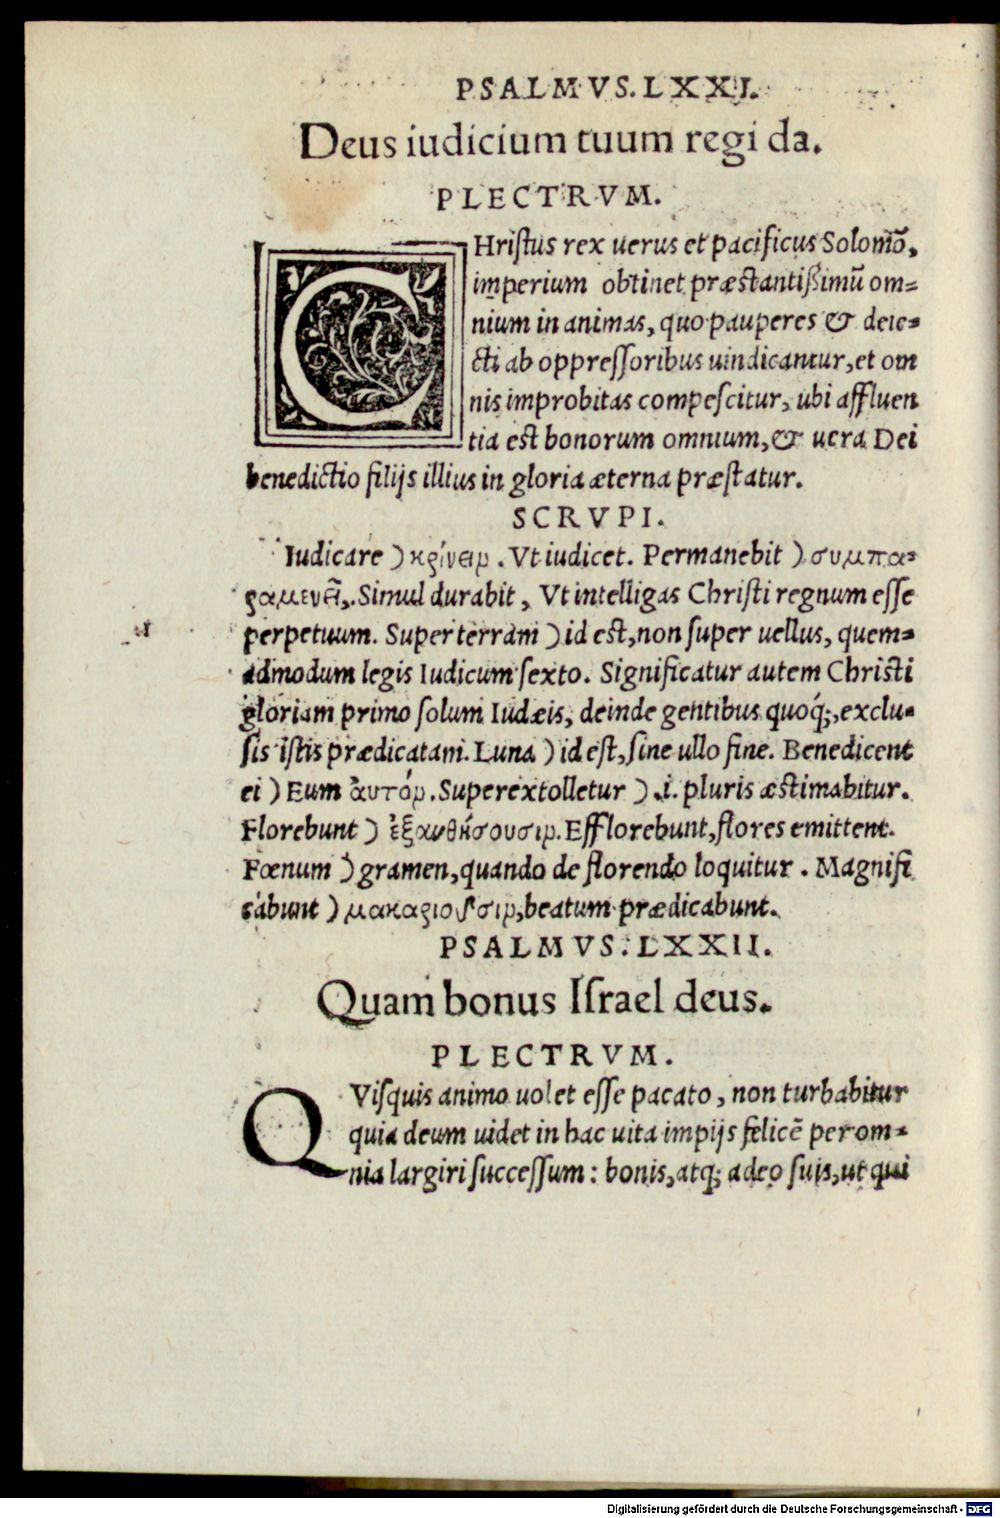 PSALMVS. LXXI.
Deus iudicium tuum regi da.
PLECTRVM.
CHriſtus rex uerus et pacificus Solomõ,
imperium obtinet præstantiſſimũ om=
nium in animas, quo pauperes & deie=
cti ab oppreſſoribus uindicantur, et om
nis improbitas compeſcitur, ubi affluen
tia est bonorum omnium, & uera Dei
benedictio filijs illius in gloria æterna præſtatur.
SCRVPI.
Iudicare ) κρίνειν. Vt iudicet. Permanebit ) συμπα=
ραμενεῖ,. Simul durabit, Vt intelligas Chriſti regnum eſſe
perpetuum. Super terram ) id est, non ſuper uellus, quem=
admodum legis Iudicum ſexto. Significatur autem Christi
gloriam primo ſolum Iudæis, deinde gentibus quoq;, exclu=
ſis istis prædicatam. Luna ) id eſt, ſine ullo fine. Benedicent
ei ) Eum ἀυτόν. Superextolletur ) .i. pluris æstimabitur.
Florebunt ) ἐξανθήσουσιν. Efflorebunt, flores emittent.
Fœnum ) gramen, quando de florendo loquitur. Magnifi
cabunt ) μακαριοῦσιν, beatum prædicabunt.
PSALMVS. LXXII.
Quam bonus Iſrael deus.
PLECTRVM.
QViſquis animo uolet eſſe pacato, non turbabitur
quia deum uidet in hac uita impijs felicẽ per om=
nia largiri ſucceſſum: bonis, atq; adeo ſuis, ut qui
Digitalisierung gefördert durch die Deutsche Forschungsgemeinschaft - DFG